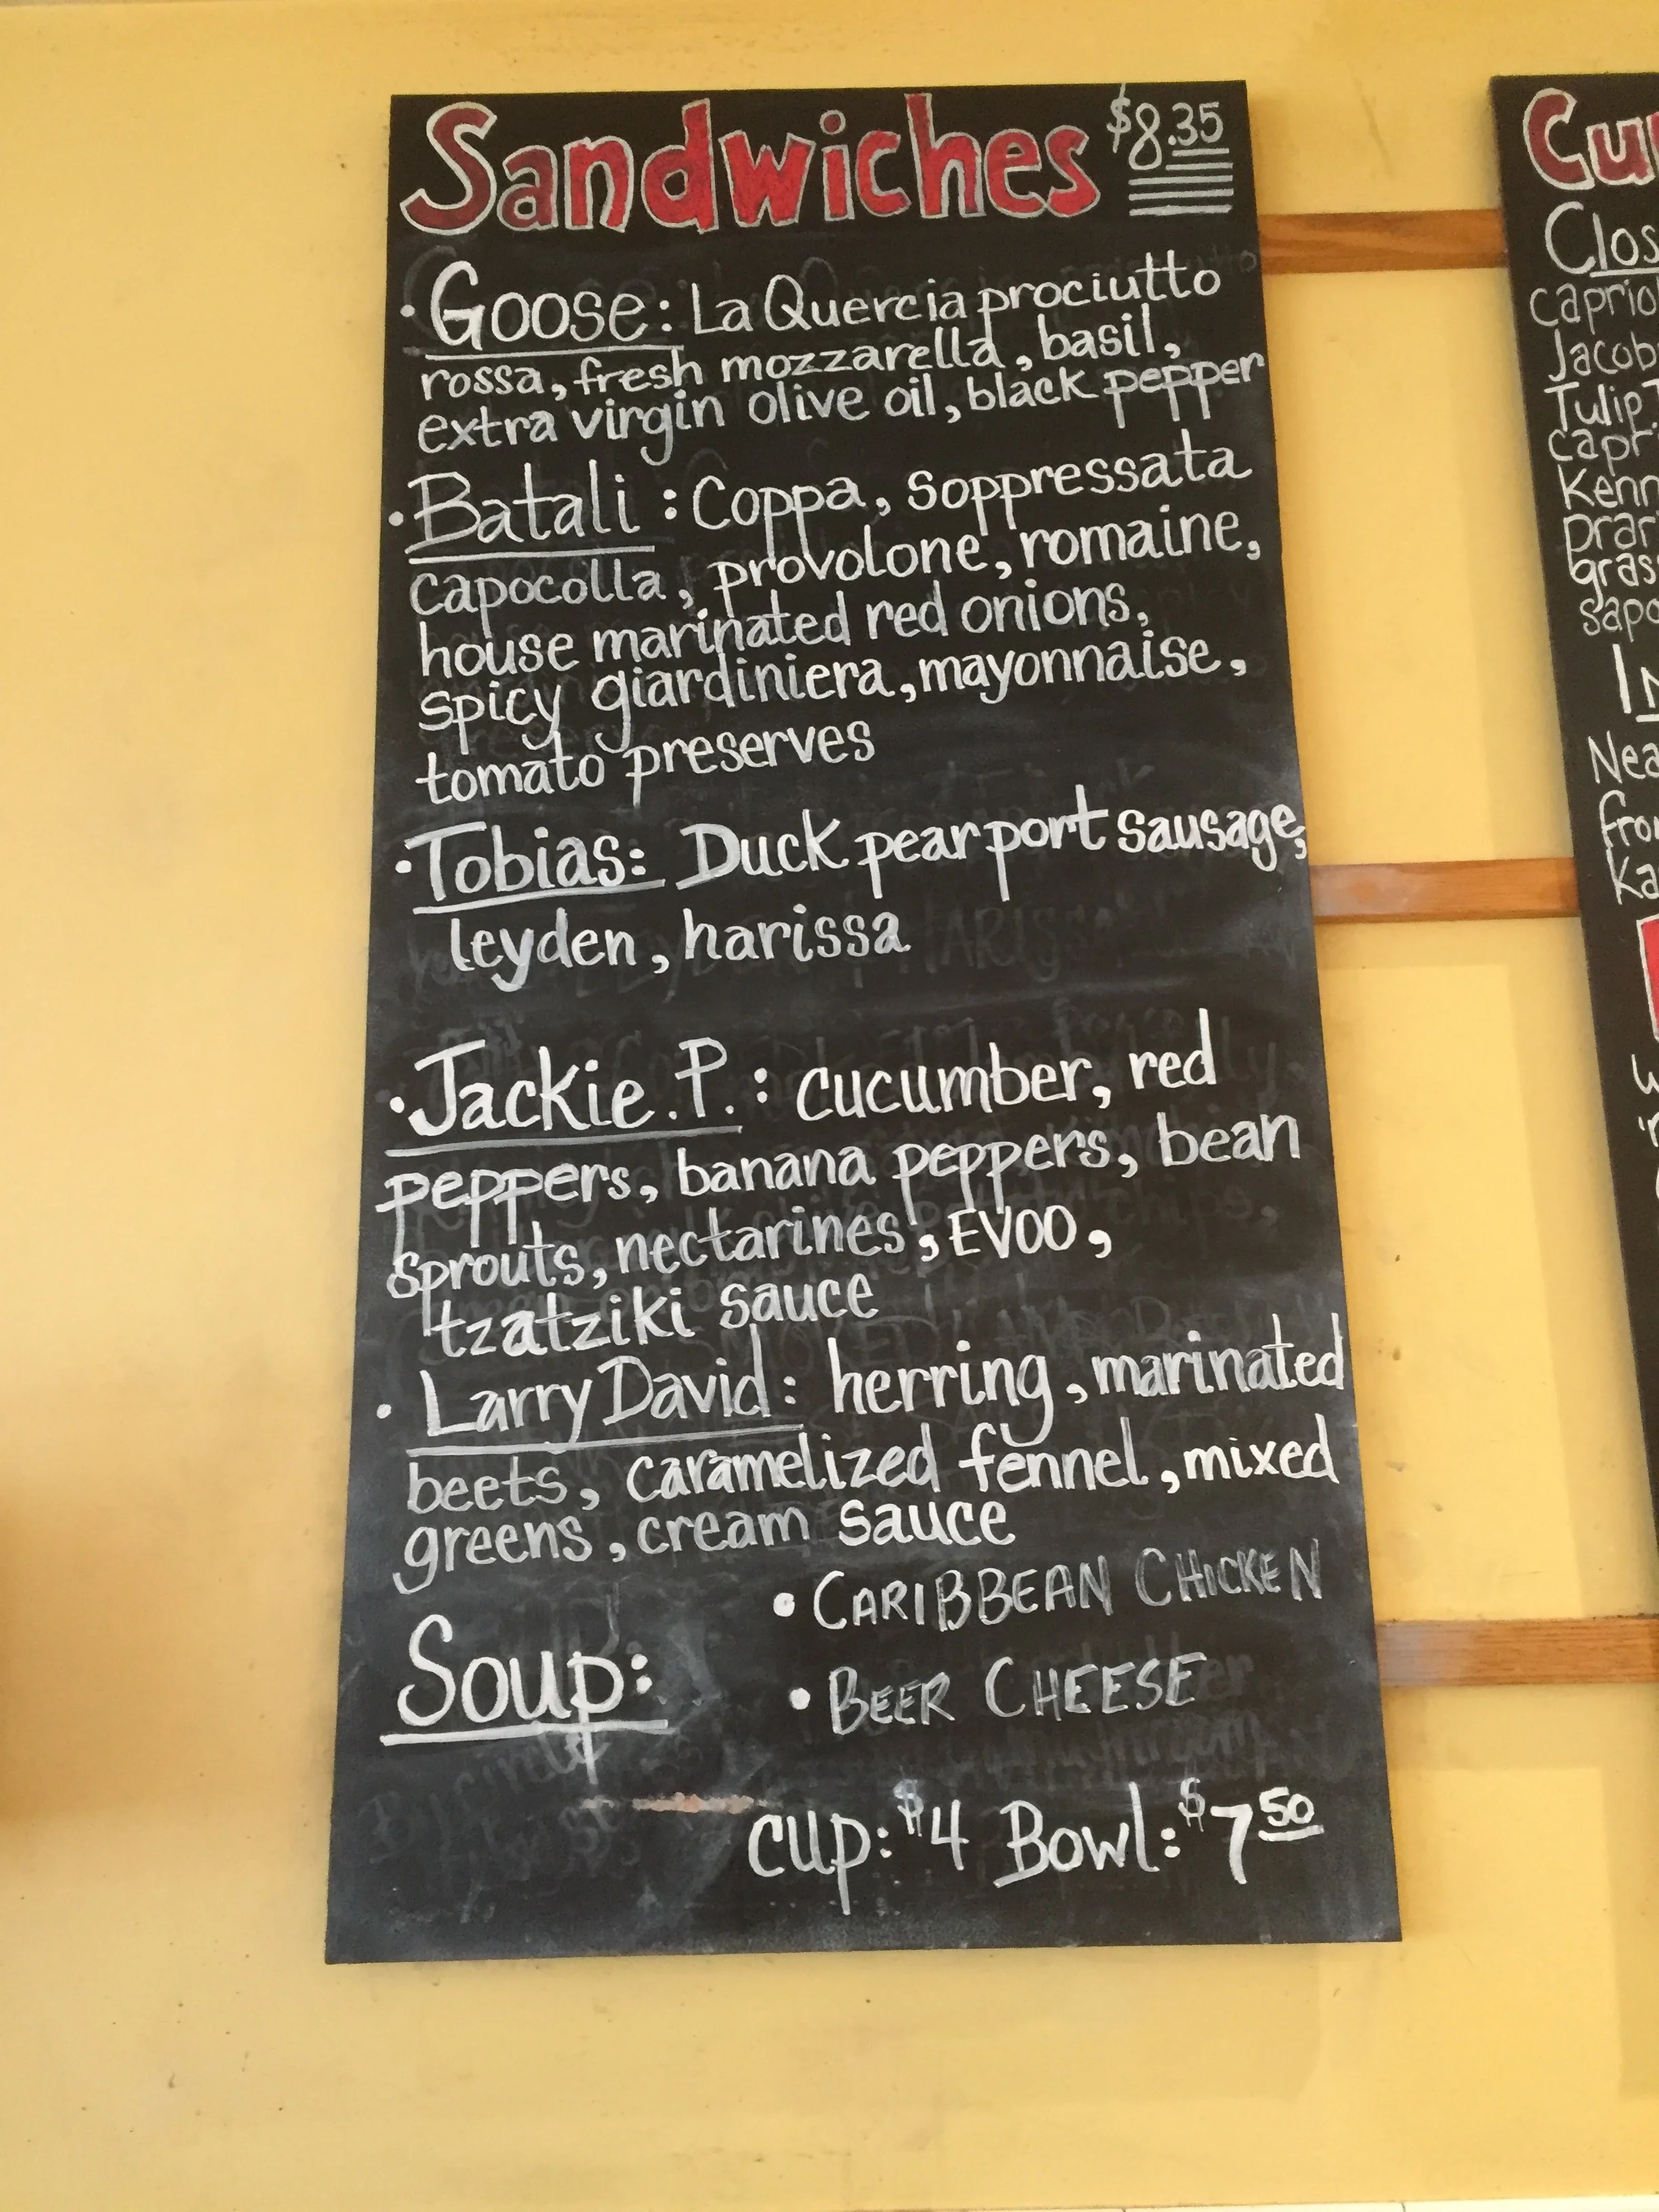 Sandwiches $8.35
• Goose: La Quercia prociutto
rossa, fresh mozzarella, basil,
extra virgin olive oil, black pepper
• Batali: Coppa, Soppressata
capocolla, provolone, romaine,
house marinated red onions,
spicy giardiniera, mayonnaise,
tomato preserves
• Tobias: Duck pear port sausage,
leyden, harissa
• Jackie.P.: cucumber, red
peppers, banana peppers, bean
sprouts, nectarines, EVOO,
tzatziki sauce
• Larry David: herring, marinated
beets, caramelized fennel, mixed
greens, cream sauce
Soup:
• CARIBBEAN CHICKEN
• BEER CHEESE
cup: $4 Bowl: $7 50
Cu
Clos
caprio
Jacob
Tulip T
capr
Kenn
prar
gras
sapo
IN
Nea
fro
Ka